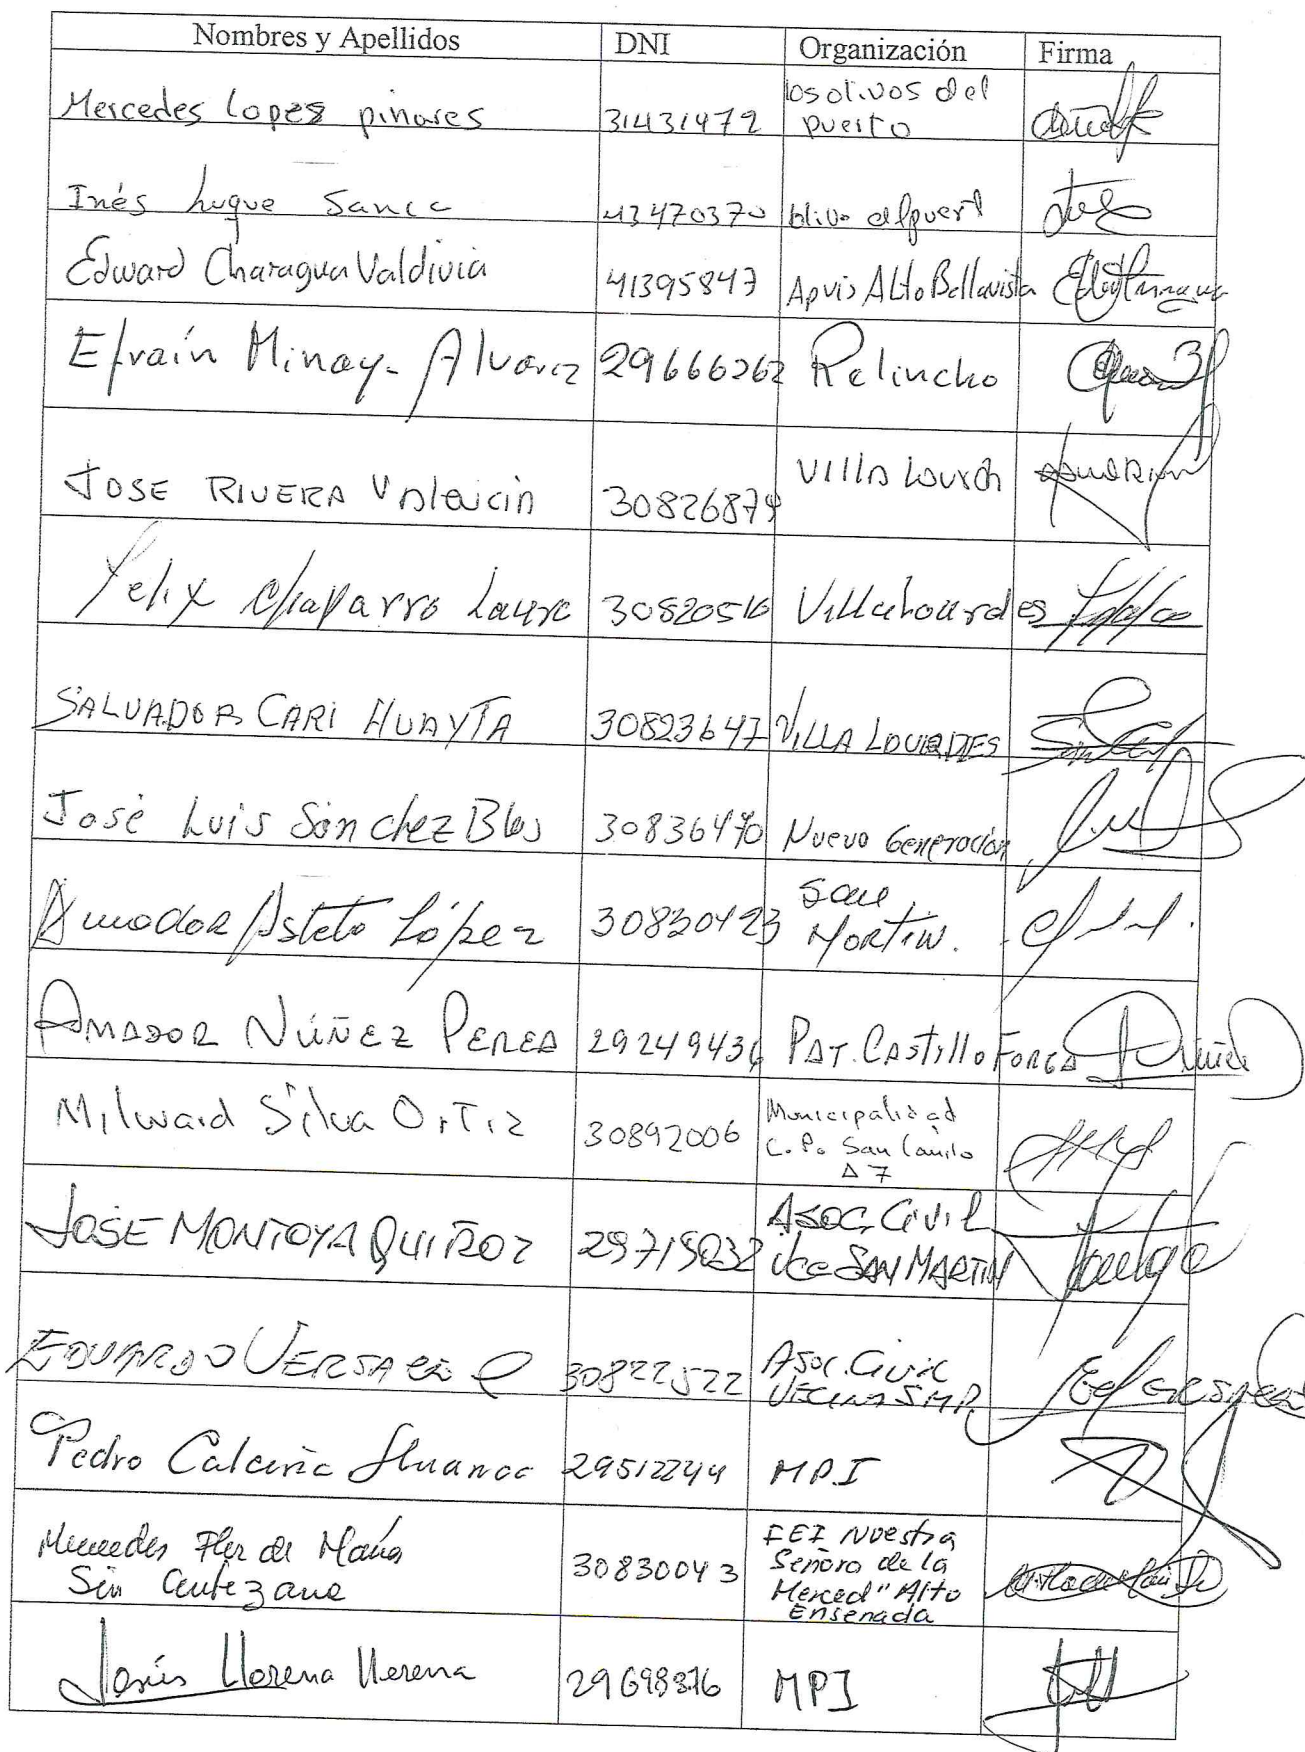 Nombres y Apellidos DNI Organización Firma
Mercedes Lopez pinares 31431472 los olivos del
puerto
Inés Luque Sanca 43470370
Edward Charagua Valdivia 41395847 Apvis Alto Bellavista
Efraín Minay Alvarez 29666262 Relincho
JOSE RIVERA Valencia 30826874 Villa Lourd
Felix Chaparro Laura 30820516 Villa Lourdes
SALVADOR CARI HUAYTA 30823647 VILLA LOURDES
José Luis Sánchez Blas 30836470 Nueva Generación
Amador Asteto López 30830423 San
Martin.
AMADOR NÚÑEZ PEREA 29249436 PAT. CASTILLO FORGA
Milward Silva Ortiz 30892006 Municipalidad
C. P. San Camilo
A7
JOSE MONTOYA QUIROZ 29715032 ASOC. CIVIL
SAN MARTIN
EDUARDO 30822522 Asoc. Civil
S.M.P.
Pedro Huanca 29512244 MPI
Mercedes Flor de María
Sin Centezano 30830043 IEI Nuestra
Señora de la
Merced" Alto
Ensenada
Jesús Llerena Llerena 29698376 MPI